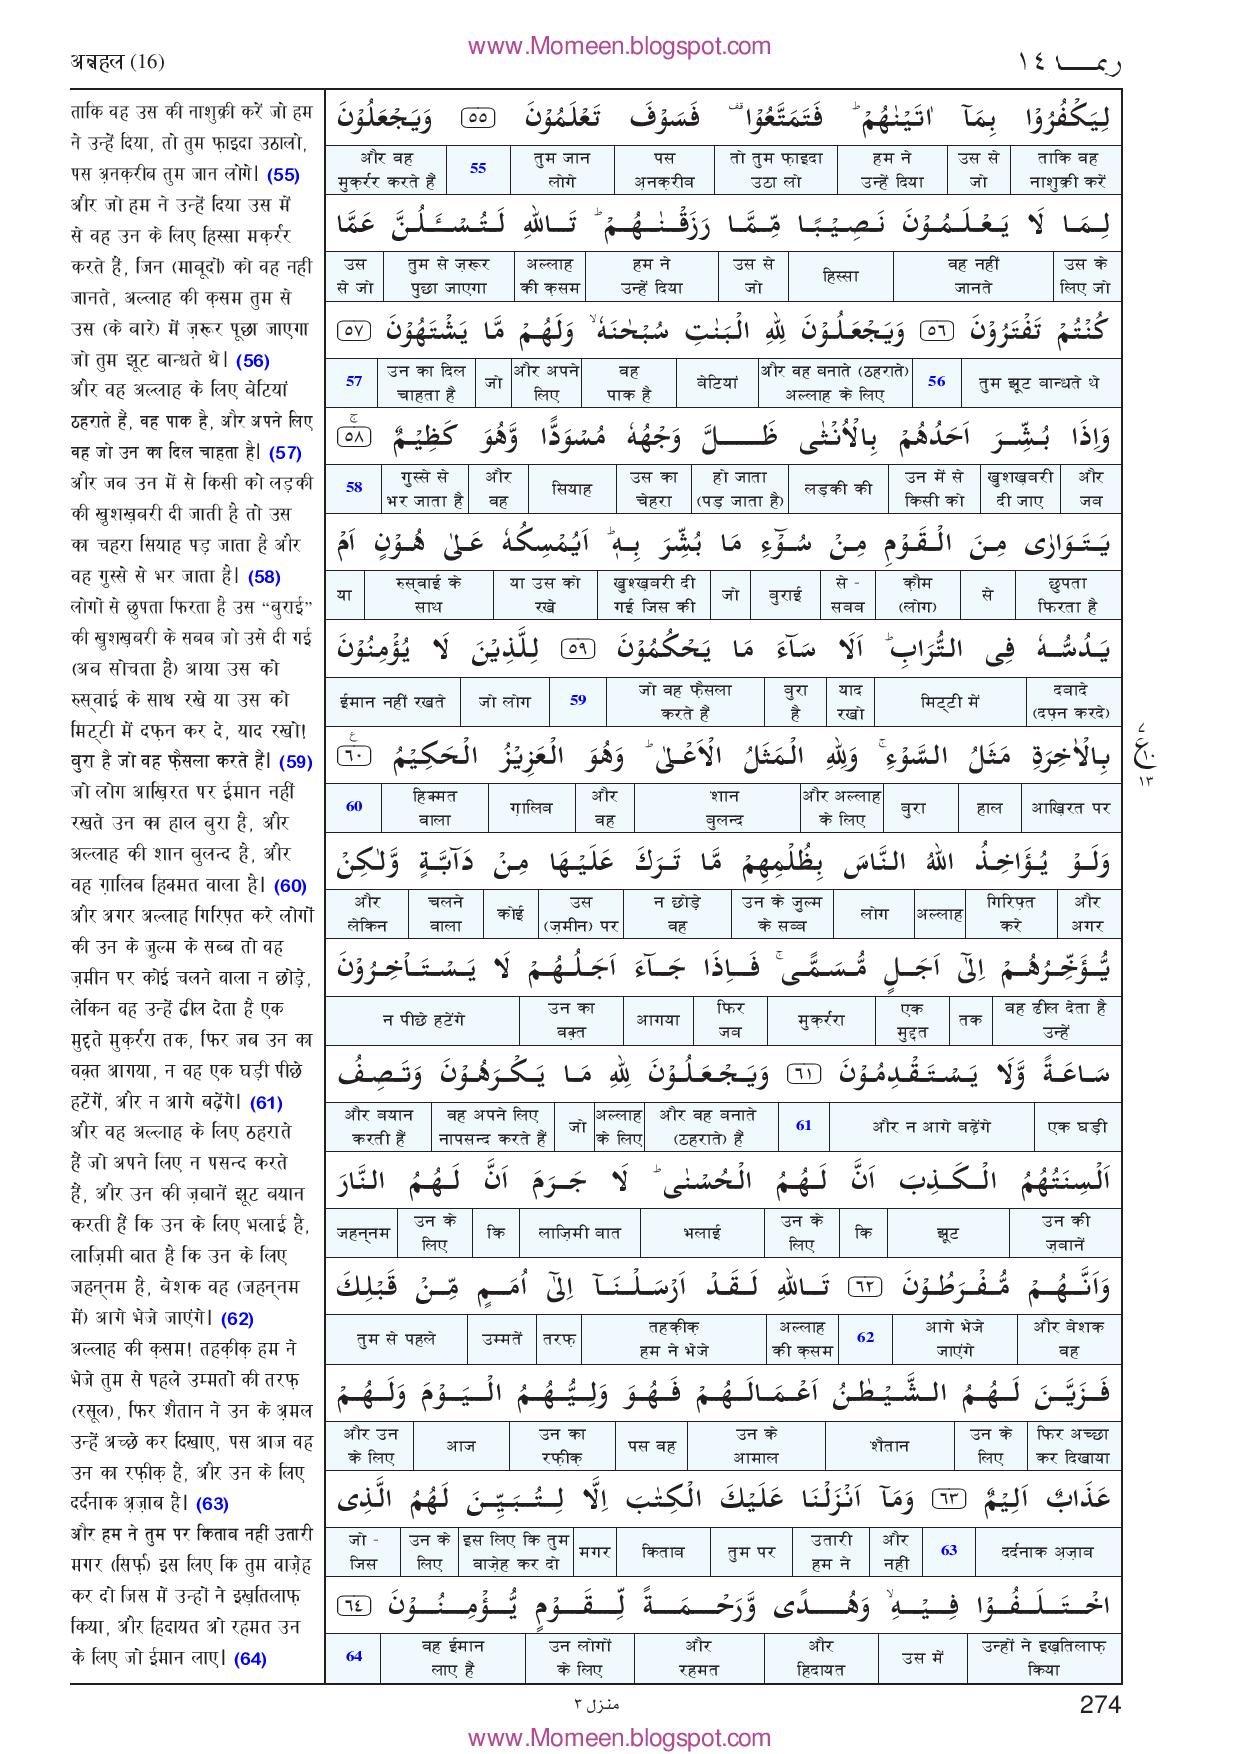 www.Momeen.blogspot.com
अन्नहल (16)
ربمـــا ١٤
ताकि वह उस की नाशुक्री करें जो हम
ने उन्हें दिया, तो तुम फ़ाइदा उठालो,
पस अ़नक़रीब तुम जान लोगे। (55)
और जो हम ने उन्हें दिया उस में
से वह उन के लिए हिस्सा मक़र्रर
करते हैं, जिन (माबूदों) को वह नहीं
जानते, अल्लाह की क़सम तुम से
उस (के बारे) में ज़रूर पूछा जाएगा
जो तुम झूट बान्धते थे। (56)
और वह अल्लाह के लिए बेटियां
ठहराते हैं, वह पाक है, और अपने लिए
वह जो उन का दिल चाहता है। (57)
और जब उन में से किसी को लड़की
की खुशख़बरी दी जाती है तो उस
का चहरा सियाह पड़ जाता है और
वह गुस्से से भर जाता है। (58)
लोगों से छुपता फिरता है उस “बुराई”
की खुशख़बरी के सबब जो उसे दी गई
(अब सोचता है) आया उस को
रुस्वाई के साथ रखे या उस को
मिट्टी में दफ़न कर दे, याद रखो!
बुरा है जो वह फ़ैसला करते हैं। (59)
जो लोग आख़िरत पर ईमान नहीं
रखते उन का हाल बुरा है, और
अल्लाह की शान बुलन्द है, और
वह ग़ालिब हिक्मत वाला है। (60)
और अगर अल्लाह गिरिफ़्त करे लोगों
की उन के ज़ुल्म के सब्ब तो वह
ज़मीन पर कोई चलने वाला न छोड़े,
लेकिन वह उन्हें ढील देता है एक
मुद्दते मुक़र्ररा तक, फिर जब उन का
वक़्त आगया, न वह एक घड़ी पीछे
हटेंगें, और न आगे बढ़ेंगे। (61)
और वह अल्लाह के लिए ठहराते
हैं जो अपने लिए न पसन्द करते
हैं, और उन की ज़बानें झूट बयान
करती हैं कि उन के लिए भलाई है,
लाज़िमी बात है कि उन के लिए
जहन्नम है, बेशक वह (जहन्नम
में) आगे भेजे जाएंगे। (62)
अल्लाह की क़सम! तहक़ीक़ हम ने
भेजे तुम से पहले उम्मतों की तरफ़
(रसूल), फिर शैतान ने उन के अ़मल
उन्हें अच्छे कर दिखाए, पस आज वह
उन का रफ़ीक़ है, और उन के लिए
दर्दनाक अ़ज़ाब है। (63)
और हम ने तुम पर किताब नहीं उतारी
मगर (सिर्फ़) इस लिए कि तुम वाज़ेह
कर दो जिस में उन्हों ने इख़तिलाफ़
किया, और हिदायत ओ रहमत उन
के लिए जो ईमान लाए। (64)
لِيَكْفُرُوْا بِمَآ اٰتَيْنٰهُمْ ؕ فَتَمَتَّعُوْا ۫ فَسَوْفَ تَعْلَمُوْنَ ٥٥ وَيَجْعَلُوْنَ
ताकि वह नाशुक्री करें उस से जो हम ने उन्हें दिया तो तुम फ़ाइदा उठा लो पस अ़नक़रीब तुम जान लोगे 55 और वह मुक़र्रर करते हैं
لِمَا لَا يَعْلَمُوْنَ نَصِيْبًا مِّمَّا رَزَقْنٰهُمْ ؕ تَاللهِ لَتُسْـَٔلُنَّ عَمَّا
उस के लिए जो वह नहीं जानते हिस्सा उस से जो हम ने उन्हें दिया अल्लाह की क़सम तुम से ज़रूर पुछा जाएगा उस से जो
كُنْتُمْ تَفْتَرُوْنَ ٥٦ وَيَجْعَلُوْنَ لِلّٰهِ الْبَنٰتِ سُبْحٰنَهٗ ۙ وَلَهُمْ مَّا يَشْتَهُوْنَ ٥٧
तुम झूट बान्धते थे 56 और वह बनाते (ठहराते) अल्लाह के लिए बेटियां वह पाक है और अपने लिए जो उन का दिल चाहता है 57
وَاِذَا بُشِّرَ اَحَدُهُمْ بِالْاُنْثٰى ظَلَّ وَجْهُهٗ مُسْوَدًّا وَّهُوَ كَظِيْمٌ ۚ ٥٨
और जब खुशख़बरी दी जाए उन में से किसी को लड़की की हो जाता (पड़ जाता है) उस का चेहरा सियाह और वह गुस्से से भर जाता है 58
يَتَوَارٰى مِنَ الْقَوْمِ مِنْ سُوْٓءِ مَا بُشِّرَ بِهٖ ؕ اَيُمْسِكُهٗ عَلٰى هُوْنٍ اَمْ
छुपता फिरता है से क़ौम (लोग) से - सबब बुराई जो खुशख़बरी दी गई जिस की या उस को रखे रुस्वाई के साथ या
يَدُسُّهٗ فِى التُّرَابِ ؕ اَلَا سَآءَ مَا يَحْكُمُوْنَ ٥٩ لِلَّذِيْنَ لَا يُؤْمِنُوْنَ
दबादे (दफ़न करदे) मिट्टी में याद रखो बुरा है जो वह फ़ैसला करते हैं 59 जो लोग ईमान नहीं रखते
بِالْاٰخِرَةِ مَثَلُ السَّوْءِ ۚ وَلِلّٰهِ الْمَثَلُ الْاَعْلٰى ؕ وَهُوَ الْعَزِيْزُ الْحَكِيْمُ ع ٦٠
आख़िरत पर हाल बुरा और अल्लाह के लिए शान बुलन्द और वह ग़ालिब हिक्मत वाला 60
٧ ع ١٠ ١٣
وَلَوْ يُؤَاخِذُ اللهُ النَّاسَ بِظُلْمِهِمْ مَّا تَرَكَ عَلَيْهَا مِنْ دَآبَّةٍ وَّلٰكِنْ
और अगर गिरिफ़्त करे अल्लाह लोग उन के जुल्म के सब्ब न छोड़े वह उस (ज़मीन) पर कोई चलने वाला और लेकिन
يُّؤَخِّرُهُمْ اِلٰٓى اَجَلٍ مُّسَمًّى ۚ فَاِذَا جَآءَ اَجَلُهُمْ لَا يَسْتَاْخِرُوْنَ
वह ढील देता है उन्हें तक एक मुद्दत मुक़र्ररा फिर जब आगया उन का वक़्त न पीछे हटेंगे
سَاعَةً وَّلَا يَسْتَقْدِمُوْنَ ٦١ وَيَجْعَلُوْنَ لِلّٰهِ مَا يَكْرَهُوْنَ وَتَصِفُ
एक घड़ी और न आगे बढ़ेंगे 61 और वह बनाते (ठहराते) हैं अल्लाह के लिए जो वह अपने लिए नापसन्द करते हैं और बयान करती हैं
اَلْسِنَتُهُمُ الْكَذِبَ اَنَّ لَهُمُ الْحُسْنٰى ؕ لَا جَرَمَ اَنَّ لَهُمُ النَّارَ
उन की ज़बानें झूट कि उन के लिए भलाई लाज़िमी बात कि उन के लिए जहन्नम
وَاَنَّهُمْ مُّفْرَطُوْنَ ٦٢ تَاللهِ لَقَدْ اَرْسَلْنَآ اِلٰٓى اُمَمٍ مِّنْ قَبْلِكَ
और बेशक वह आगे भेजे जाएंगे 62 अल्लाह की क़सम तहक़ीक़ हम ने भेजे तरफ़ उम्मतें तुम से पहले
فَزَيَّنَ لَهُمُ الشَّيْطٰنُ اَعْمَالَهُمْ فَهُوَ وَلِيُّهُمُ الْيَوْمَ وَلَهُمْ
फिर अच्छा कर दिखाया उन के लिए शैतान उन के आमाल पस वह उन का रफ़ीक़ आज और उन के लिए
عَذَابٌ اَلِيْمٌ ٦٣ وَمَآ اَنْزَلْنَا عَلَيْكَ الْكِتٰبَ اِلَّا لِتُبَيِّنَ لَهُمُ الَّذِى
दर्दनाक अ़ज़ाब 63 और नहीं उतारी हम ने तुम पर किताब मगर इस लिए कि तुम वाज़ेह कर दो उन के लिए जो - जिस
اخْتَلَفُوْا فِيْهِ ۙ وَهُدًى وَّرَحْمَةً لِّقَوْمٍ يُّؤْمِنُوْنَ ٦٤
उन्हों ने इख़तिलाफ़ किया उस में और हिदायत और रहमत उन लोगों के लिए वह ईमान लाए हैं 64
منزل ٣
274
www.Momeen.blogspot.com